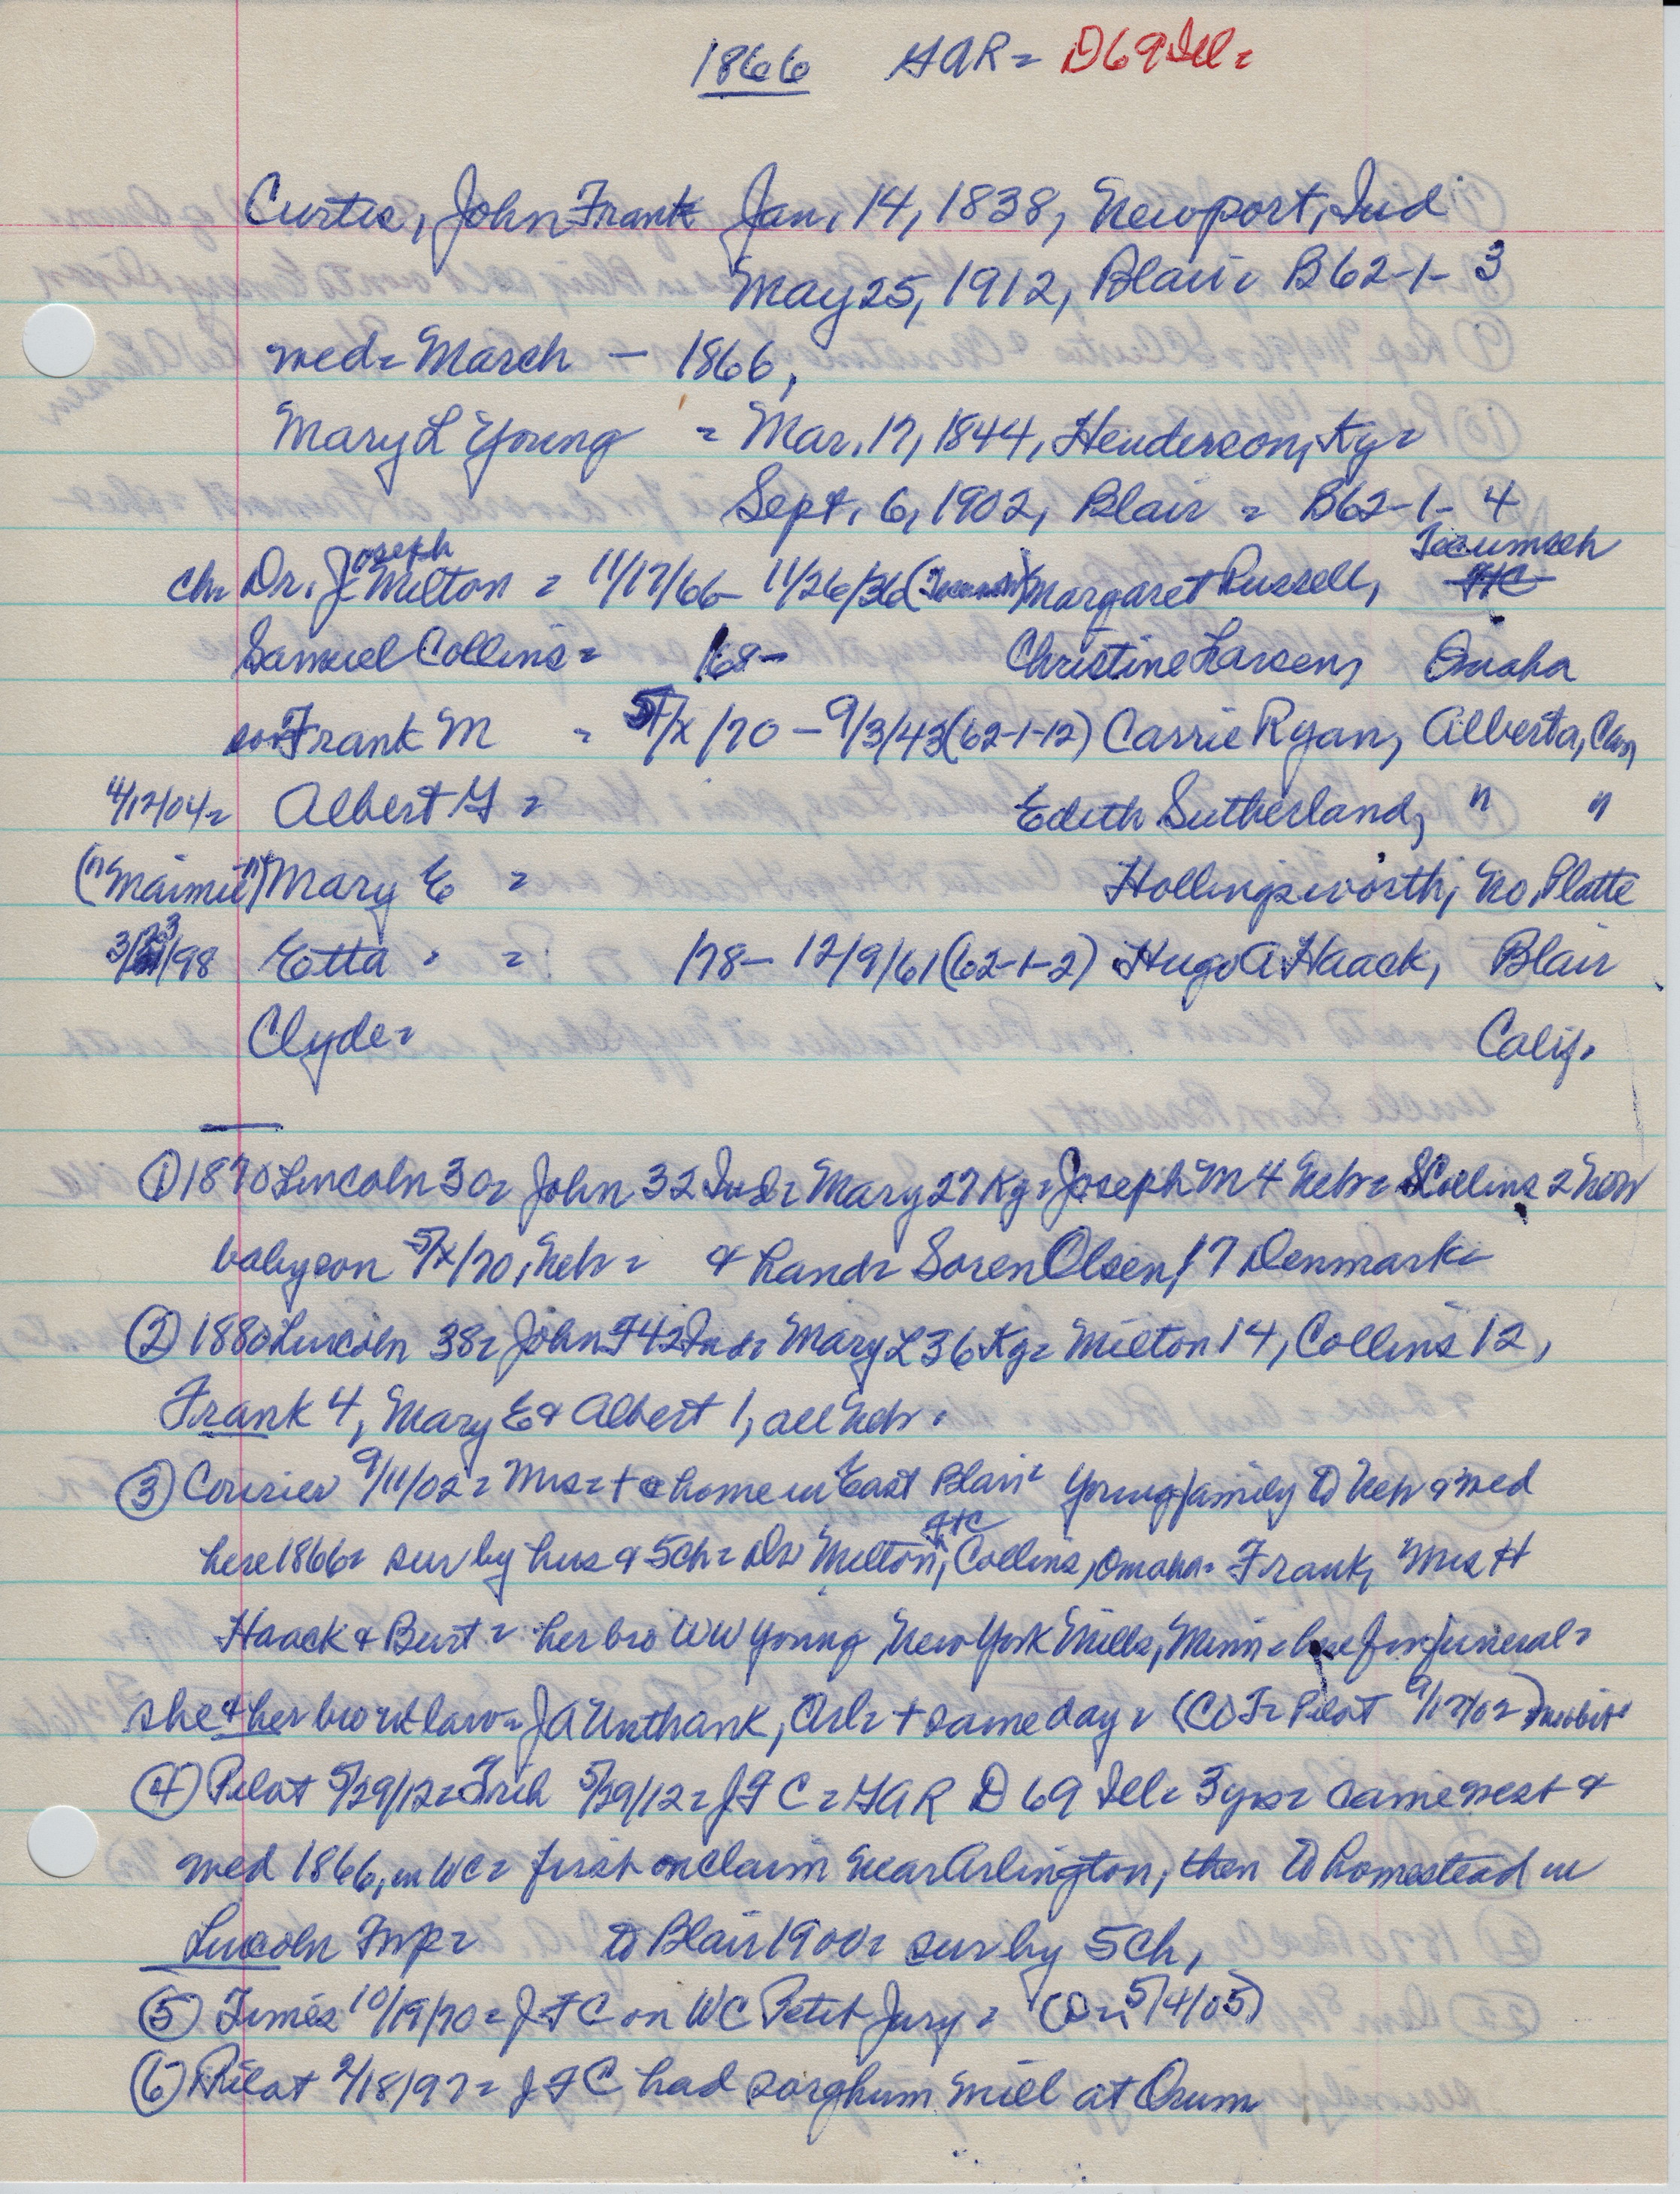 1866 GAR = D 69 Ill =
Curtis, John Frank Jan. 14, 1838, Newport, Ind
May 25, 1912, Blair = B62-1-3
med = March — 1866,
Mary L Young = Mar. 17, 1844, Henderson, Ky =
Sept. 6, 1902, Blair = B62-1-4
ch = Dr. J. Joseph Milton = 11/17/66 - 11/26/36 (Tecumseh) Margaret Russell, FtC Tecumseh
Samuel Collins = /68 - Christine Larsen, Omaha
Frank M = 5/x/70 - 9/3/43 (62-1-12) Carrie Ryan, Alberta, Can
4/12/04 = Albert G = Edith Sutherland, " "
("Maimie") Mary E = Hollingsworth, No. Platte
3/23/98 Etta = /78 - 12/9/61 (62-1-2) Hugo A Haack, Blair
Clyde = Calif.
① 1870 Lincoln 30 = John 32 Ind = Mary 27 Ky = Joseph M 4 Neb = S Collins 2 Neb
baby son 5/x/70, Neb = & hand = Soren Olsen, 17 Denmark =
② 1880 Lincoln 38 = John F 42 Ind = Mary L 36 Ky = Milton 14, Collins 12,
Frank 4, Mary E & Albert 1, all Neb.
③ Courier 9/11/02 = Mrs = + @ home in East Blair = Young family to Neb & med
here 1866 = sur by hus & 5 ch = Dr Milton, FtC, Collins, Omaha = Frank, Mrs H
Haack & Burt = her bro WW Young, New York Mills, Minn = here for funeral =
she & her bro in law = J A Unthank, Arl = + same day = (CoT = Pilot 9/17/02 = no obit)
④ Pilot 5/29/12 = Trib 5/29/12 = J F C = GAR D 69 Ill = 3 yrs = came west &
med 1866, in WC = first on claim near Arlington, then to homestead in
Lincoln Twp = to Blair 1900 = sur by 5 ch,
⑤ Times 10/19/70 = J F C on WC Petit Jury = (5/4/05)
⑥ Pilot 2/18/97 = J F C had sorghum mill at Orum